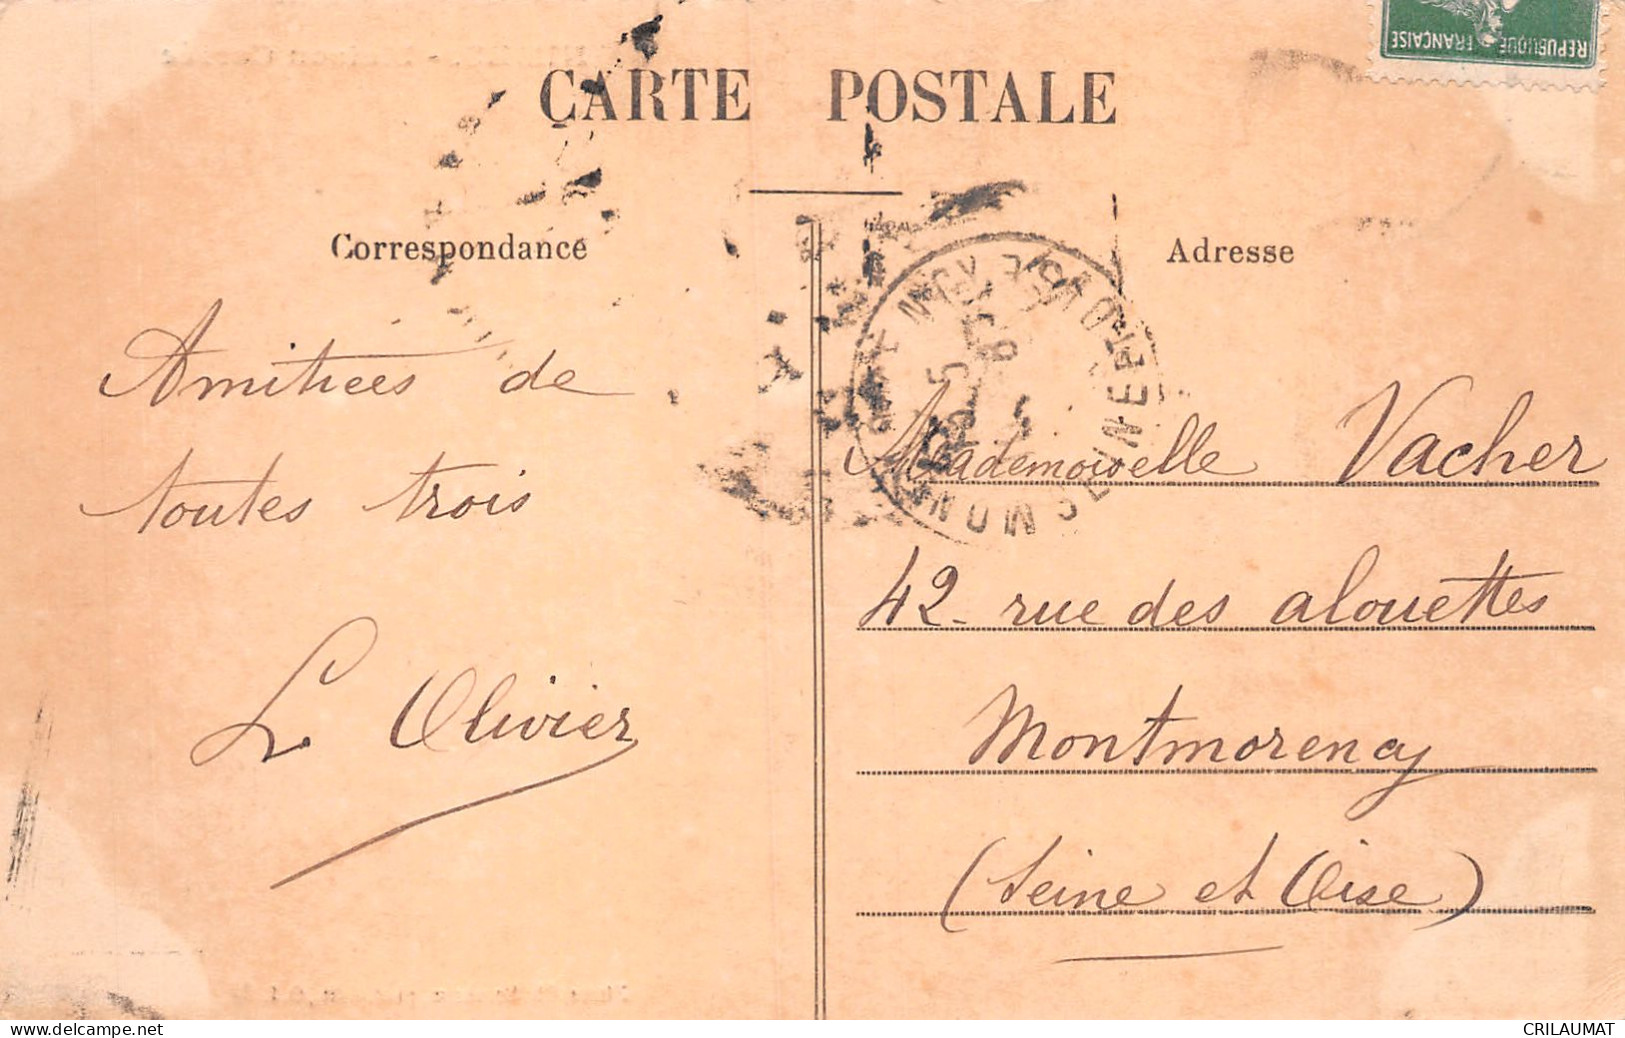 REPUBLIQUE FRANÇAISE
CARTE POSTALE
Correspondance
Adresse
Amitiées de
toutes trois
L Olivier
Mademoiselle Vacher
42 - rue des alouettes
Montmorency
(Seine et Oise)
www.delcampe.net
CRILAUMAT